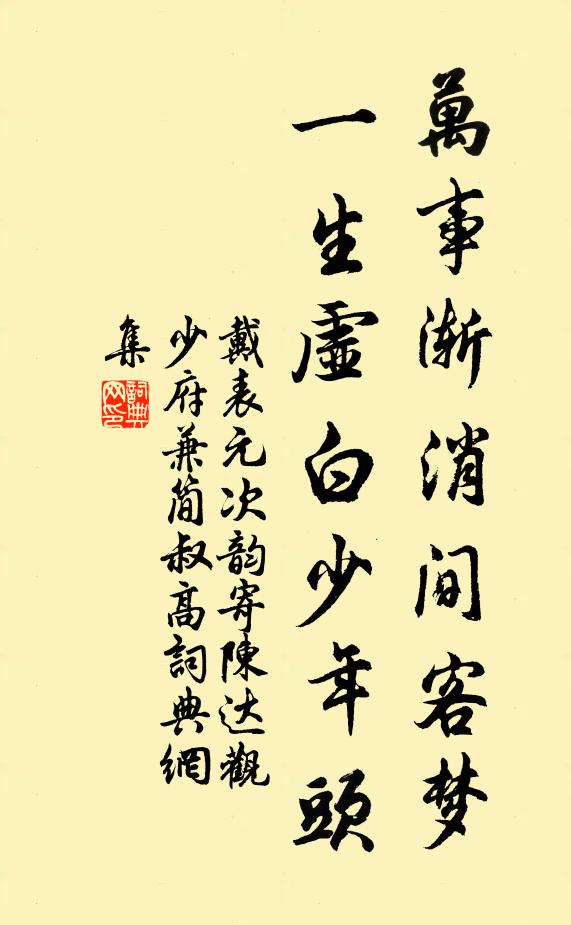 萬事漸消閒客梦
一生虛白少年頭
戴表元次韵寄陳达觀
少府兼簡叔高詞典網
集
詞典网印